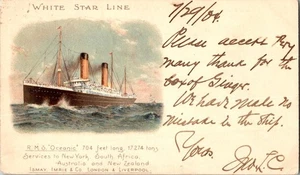 WHITE STAR LINE
7/29/04
Please accept Very
many thanks for the
box of Gings.
We had made no
mistake in the Ship.
Yours
R.M.S. "Oceanic" 704 feet long, 17274 tons
Services to New York, South Africa,
Australia and New Zealand
Ismay, Imrie & Co. London & Liverpool